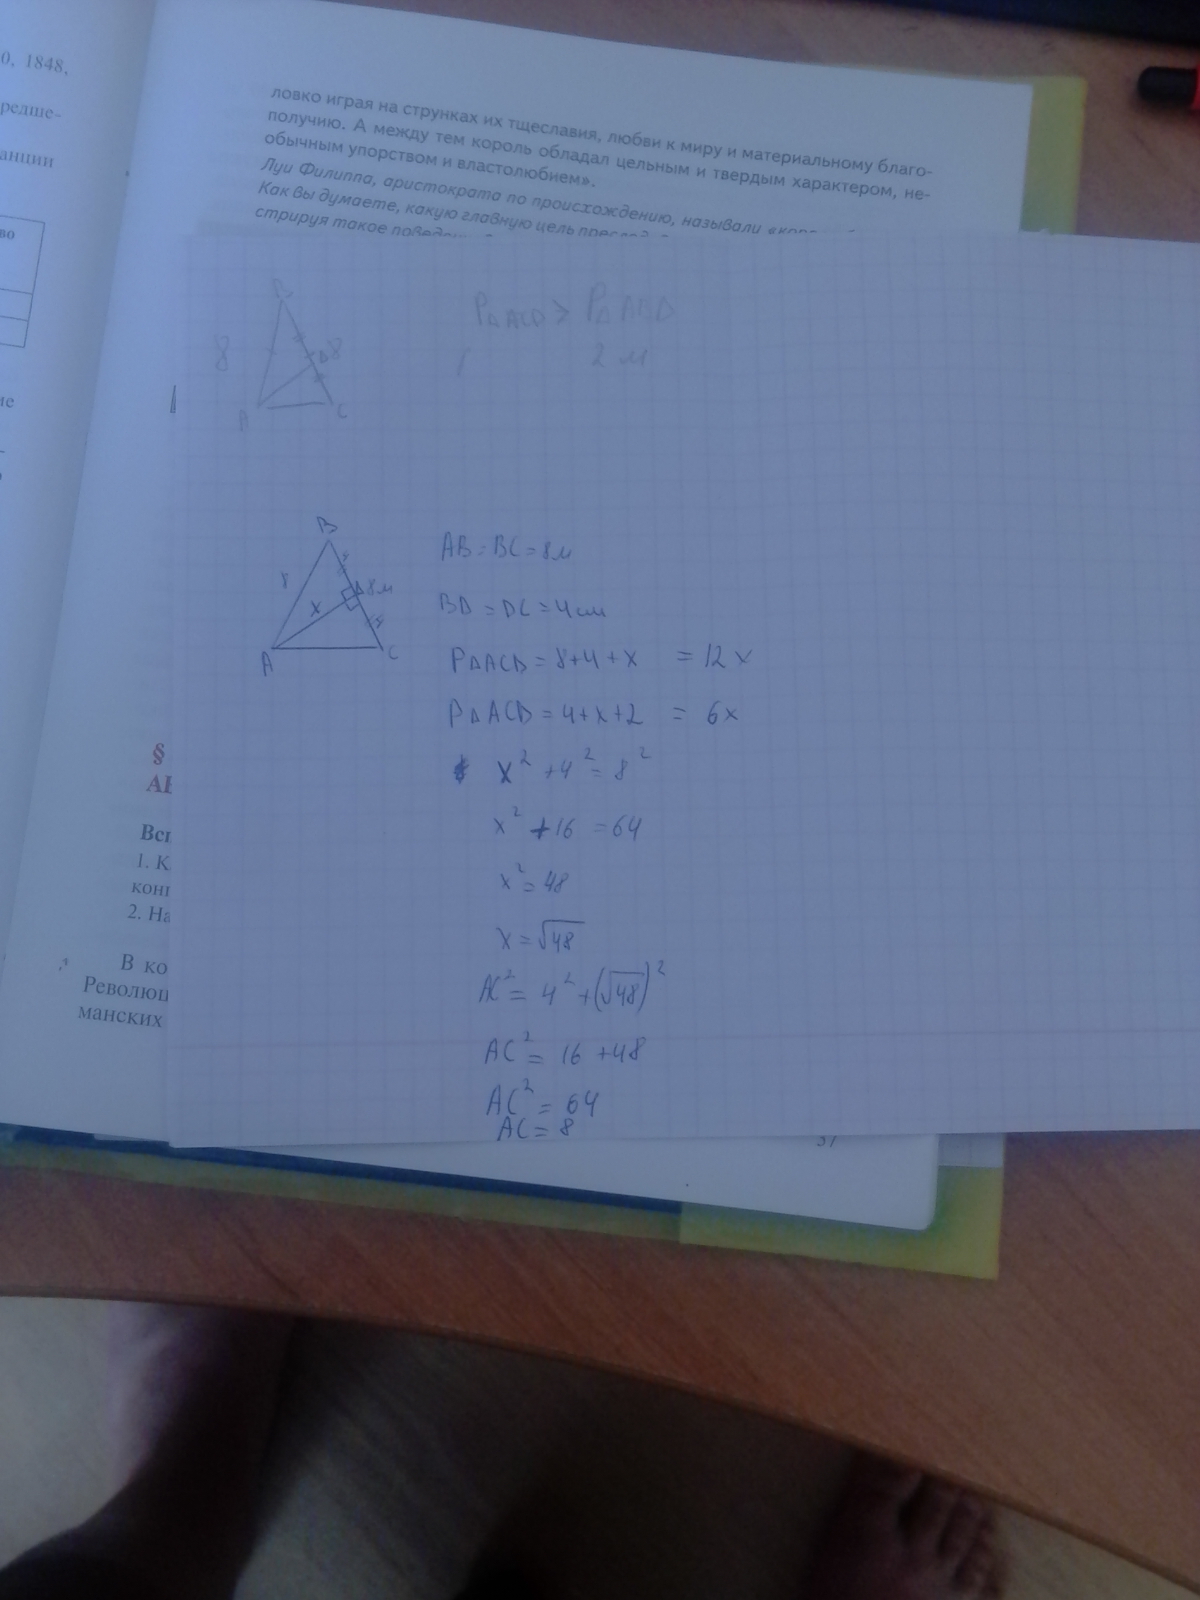 0, 1848,
редше-
анции
во
ие
ловко играя на струнках их тщеславия, любви к миру и материальному благо-
получию. А между тем король обладал цельным и твердым характером, не-
обычным упорством и властолюбием».
Луи Филиппа, аристократа по происхождению, называли «
Как вы думаете, какую главную цель
стрируя такое
B
8
8
A
C
P△ACD > P△ABD
2 м
B
8
4
D 8м
x
4
A
C
AB = BC = 8м
BD = DC = 4см
P△ACD = 8+4+x = 12x
P△ACD = 4+x+2 = 6x
x² + 4² = 8²
x² + 16 = 64
x² = 48
x = √48
AC² = 4² + (√48)²
AC² = 16 + 48
AC² = 64
AC = 8
§
Всп
1. К
конг
2. На
В ко
Револющ
манских